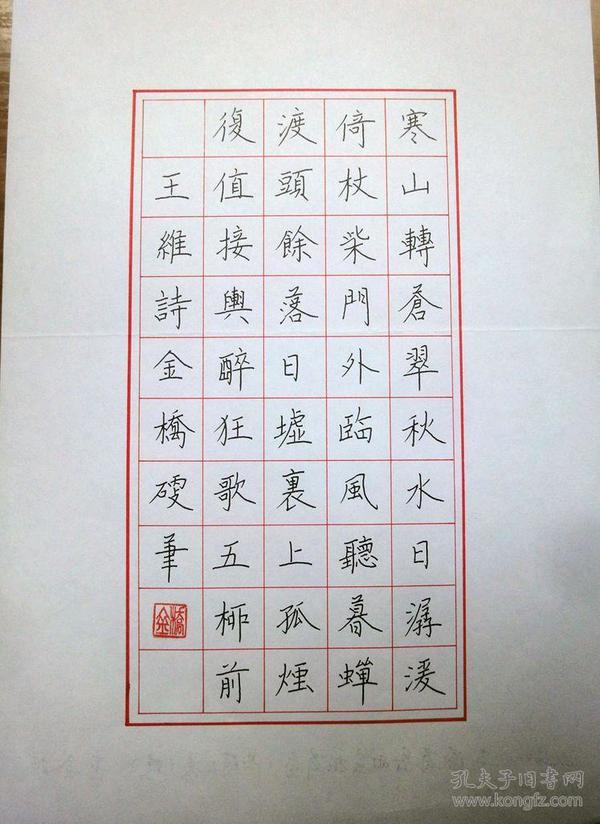 寒山轉蒼翠秋水日潺湲
倚杖柴門外臨風聽暮蟬
渡頭餘落日墟裏上孤煙
復值接輿醉狂歌五柳前
王維詩金橋硬筆
金橋
孔夫子旧书网
www.kongfz.com